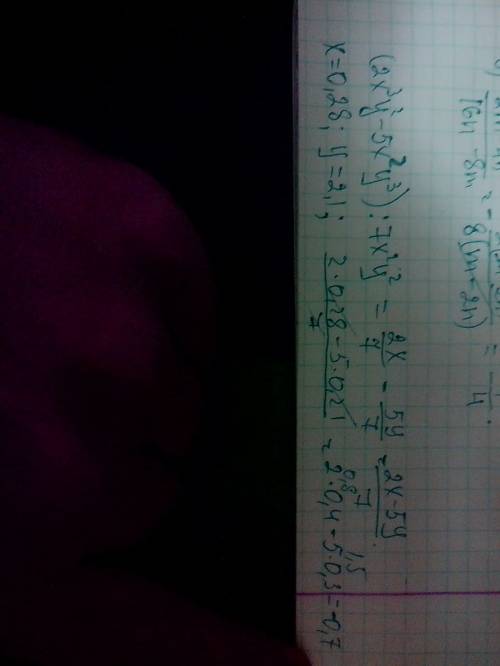 16n - 8m = - 8(m - 2n) = 4.
(2x³y² - 5x²y³) : 7x²y² = 2x/7 - 5y/7 = (2x - 5y)/7.
x = 0,28; y = 2,1; (2·0,28 - 5·0,21)/7 = 2·0,4 - 5·0,3 = -0,7
0,8 1,5